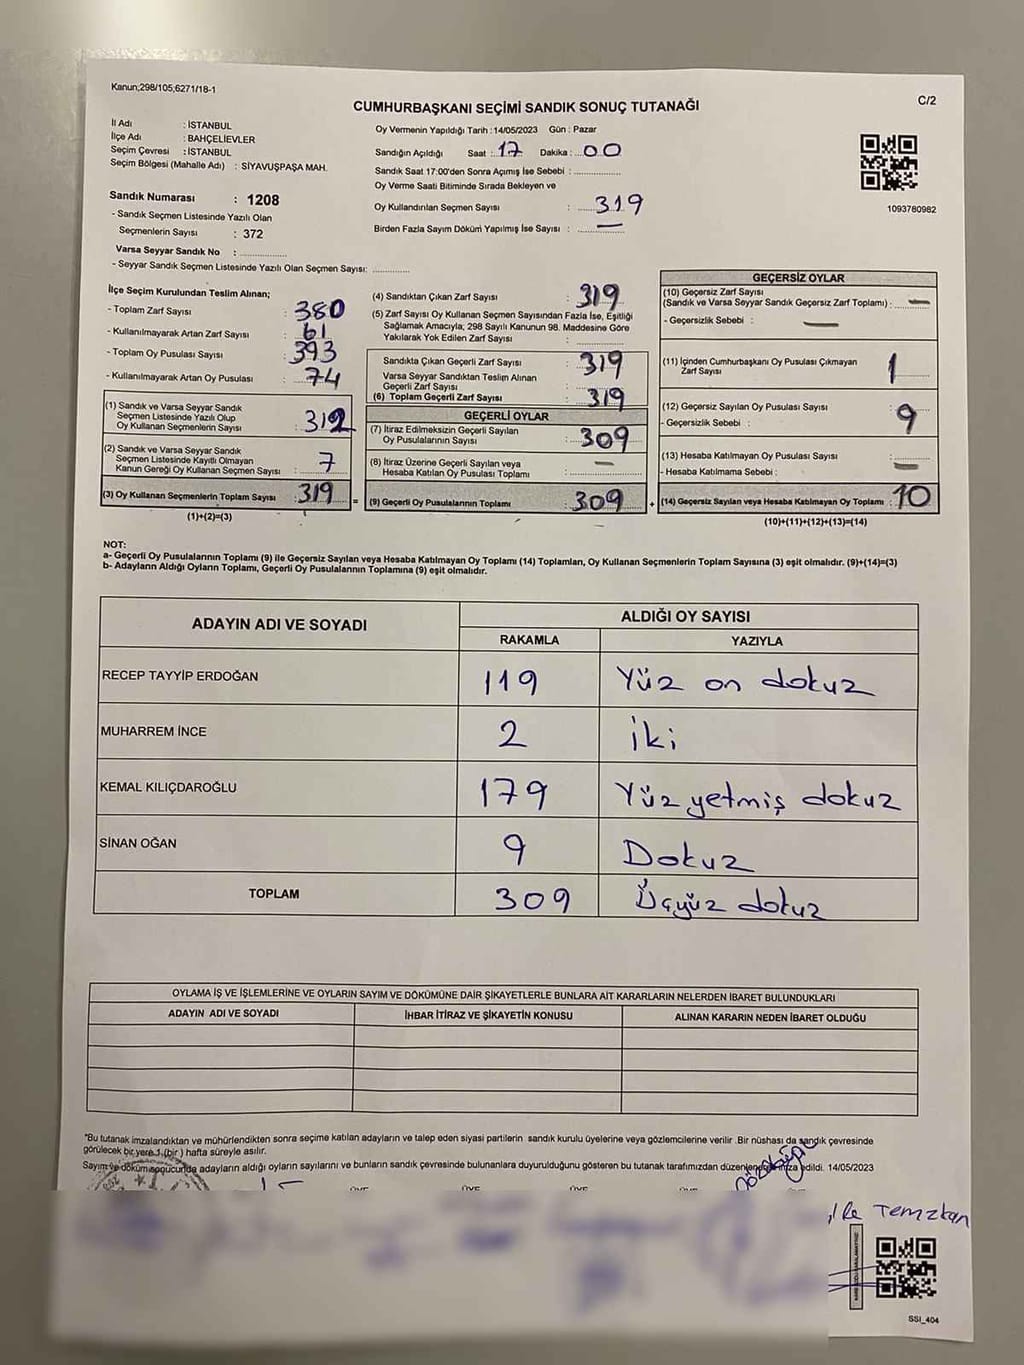 Kanun;298/105;6271/18-1
C/2
CUMHURBAŞKANI SEÇİMİ SANDIK SONUÇ TUTANAĞI
İl Adı : İSTANBUL
İlçe Adı : BAHÇELİEVLER
Seçim Çevresi : İSTANBUL
Seçim Bölgesi (Mahalle Adı) : SİYAVUŞPAŞA MAH.
Oy Vermenin Yapıldığı Tarih : 14/05/2023 Gün : Pazar
Sandığın Açıldığı Saat : 17 Dakika : 00
Sandık Saat 17:00'den Sonra Açımış İse Sebebi :
Oy Verme Saati Bitiminde Sırada Bekleyen ve
Oy Kullandırılan Seçmen Sayısı : 319
Birden Fazla Sayım Döküm Yapılmış İse Sayısı : —
1093780982
Sandık Numarası : 1208
- Sandık Seçmen Listesinde Yazılı Olan
Seçmenlerin Sayısı : 372
Varsa Seyyar Sandık No :
- Seyyar Sandık Seçmen Listesinde Yazılı Olan Seçmen Sayısı:
İlçe Seçim Kurulundan Teslim Alınan;
- Toplam Zarf Sayısı : 380
- Kullanılmayarak Artan Zarf Sayısı : 61
- Toplam Oy Pusulası Sayısı : 393
- Kullanılmayarak Artan Oy Pusulası : 74
(1) Sandık ve Varsa Seyyar Sandık
Seçmen Listesinde Yazılı Olup
Oy Kullanan Seçmenlerin Sayısı : 312
(2) Sandık ve Varsa Seyyar Sandık
Seçmen Listesinde Kayıtlı Olmayan
Kanun Gereği Oy Kullanan Seçmen Sayısı : 7
(3) Oy Kullanan Seçmenlerin Toplam Sayısı : 319
(1)+(2)=(3)
(4) Sandıktan Çıkan Zarf Sayısı : 319
(5) Zarf Sayısı Oy Kullanan Seçmen Sayısından Fazla İse, Eşitliği
Sağlamak Amacıyla; 298 Sayılı Kanunun 98. Maddesine Göre
Yakılarak Yok Edilen Zarf Sayısı :
Sandıkta Çıkan Geçerli Zarf Sayısı : 319
Varsa Seyyar Sandıktan Teslim Alınan
Geçerli Zarf Sayısı :
(6) Toplam Geçerli Zarf Sayısı : 319
GEÇERLİ OYLAR
(7) İtiraz Edilmeksizin Geçerli Sayılan
Oy Pusulalarının Sayısı : 309
(8) İtiraz Üzerine Geçerli Sayılan veya
Hesaba Katılan Oy Pusulası Toplamı : —
= (9) Geçerli Oy Pusulalarının Toplamı : 309
GEÇERSİZ OYLAR
(10) Geçersiz Zarf Sayısı
(Sandık ve Varsa Seyyar Sandık Geçersiz Zarf Toplamı) : —
- Geçersizlik Sebebi : —
(11) İçinden Cumhurbaşkanı Oy Pusulası Çıkmayan
Zarf Sayısı : 1
(12) Geçersiz Sayılan Oy Pusulası Sayısı : 9
- Geçersizlik Sebebi :
(13) Hesaba Katılmayan Oy Pusulası Sayısı : —
- Hesaba Katılmama Sebebi :
+ (14) Geçersiz Sayılan veya Hesaba Katılmayan Oy Toplamı : 10
(10)+(11)+(12)+(13)=(14)
NOT:
a- Geçerli Oy Pusulalarının Toplamı (9) ile Geçersiz Sayılan veya Hesaba Katılmayan Oy Toplamı (14) Toplamları, Oy Kullanan Seçmenlerin Toplam Sayısına (3) eşit olmalıdır. (9)+(14)=(3)
b- Adayların Aldığı Oyların Toplamı, Geçerli Oy Pusulalarının Toplamına (9) eşit olmalıdır.
ADAYIN ADI VE SOYADI
ALDIĞI OY SAYISI
RAKAMLA YAZIYLA
RECEP TAYYİP ERDOĞAN 119 Yüz on dokuz
MUHARREM İNCE 2 iki
KEMAL KILIÇDAROĞLU 179 Yüz yetmiş dokuz
SİNAN OĞAN 9 Dokuz
TOPLAM 309 Üçyüz dokuz
OYLAMA İŞ VE İŞLEMLERİNE VE OYLARIN SAYIM VE DÖKÜMÜNE DAİR ŞİKAYETLERLE BUNLARA AİT KARARLARIN NELERDEN İBARET BULUNDUKLARI
ADAYIN ADI VE SOYADI İHBAR İTİRAZ VE ŞİKAYETİN KONUSU ALINAN KARARIN NEDEN İBARET OLDUĞU
*Bu tutanak imzalandıktan ve mühürlendikten sonra seçime katılan adayların ve talep eden siyasi partilerin sandık kurulu üyelerine veya gözlemcilerine verilir. Bir nüshası da sandık çevresinde
görülecek bir yere 1 (bir) hafta süreyle asılır.
Sayım ve döküm sonucunda adayların aldığı oyların sayılarını ve bunların sandık çevresinde bulunanlara duyurulduğunu gösteren bu tutanak tarafımızdan düzenlenerek imza edildi. 14/05/2023
SSI_404